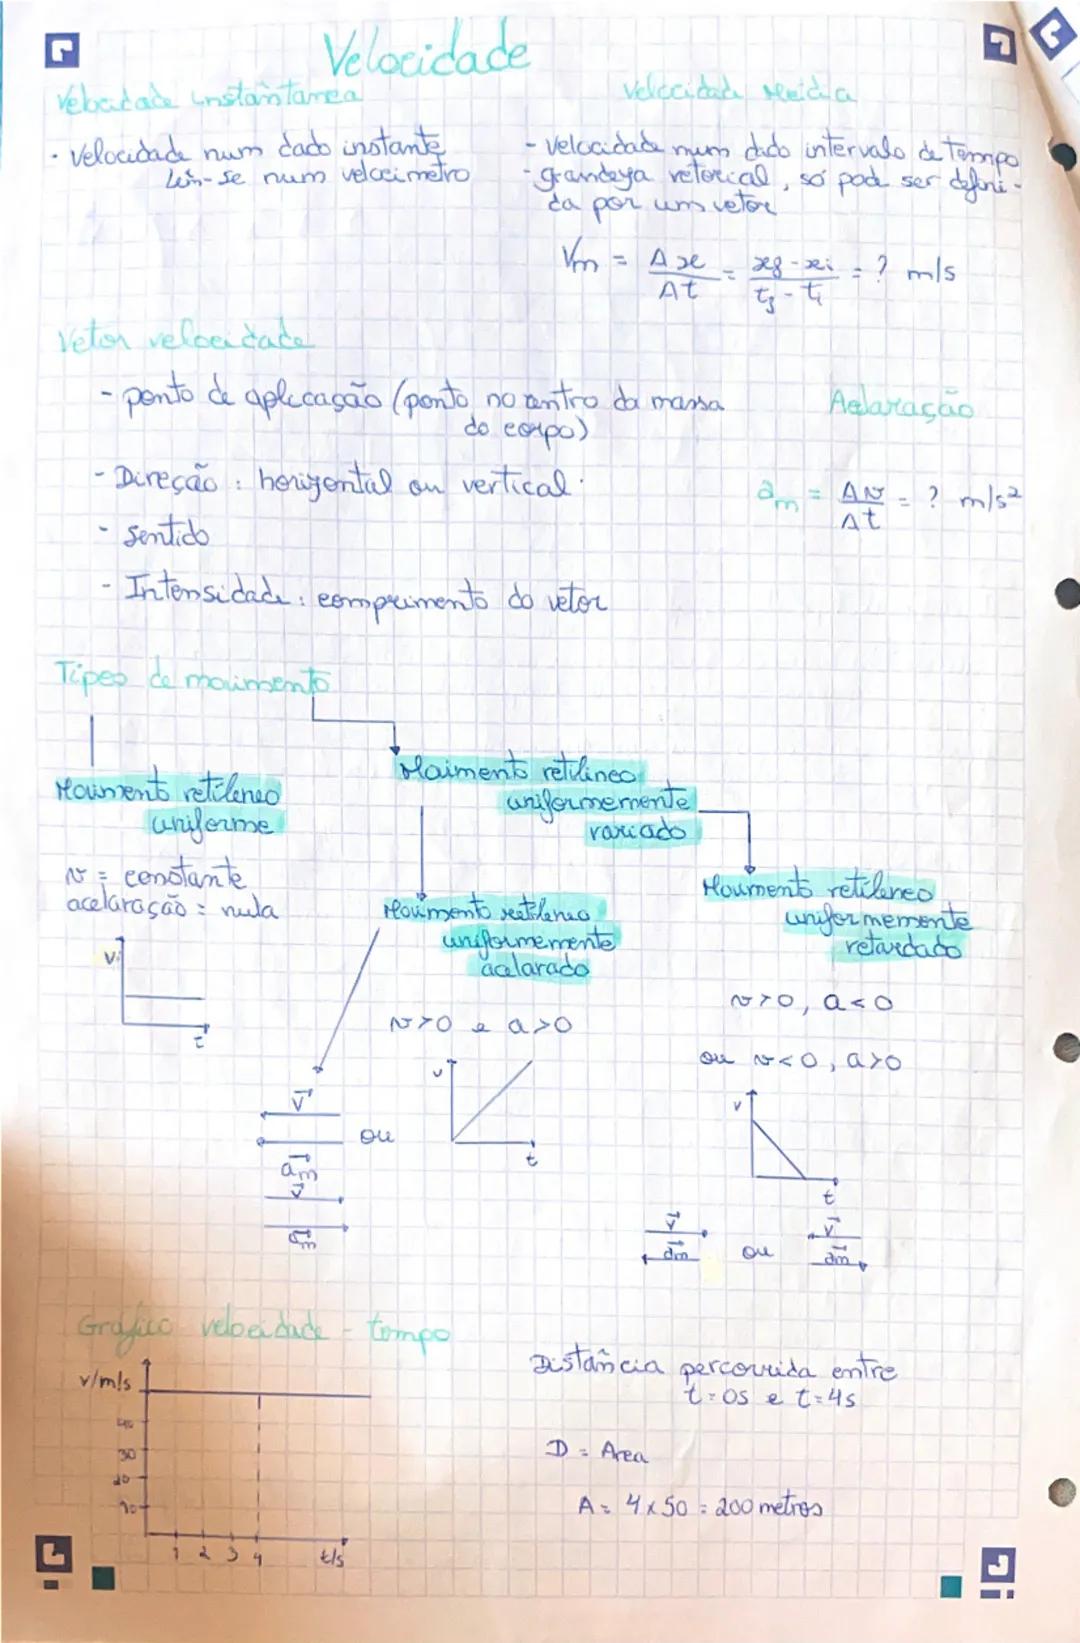 Velocidade
Velocidade instantanea
· Velocidade num dado instante
Lên-se num velocimetro
Velocidade Média
- Velocidade num dado intervalo de tempo
- grandeza vetorial, só pode ser defini-
da por um vetor
Vm = Δx/Δt = xf-xi/tf-ti = ? m/s
Vetor velocidade
- ponto de aplicação (ponto no centro da massa
do corpo)
- Direção: horizontal ou vertical.
- Sentido
- Intensidade: comprimento do vetor
Acelaração
am = Δv/Δt = ? m/s²
Tipos de movimento
Movimento retileneo
uniforme
v = constante
acelaração = nula
v
t
Movimento retilineo
uniformemente
variado
Movimento retileneo
uniformemente
acelarado
v>0 e a>0
v
t
v⃗
ou
am⃗
v⃗
am⃗
Movimento retileneo
uniformemente
retardado
v>0, a<0
ou v<0, a>0
v
t
v⃗
am⃗
ou
v⃗
am⃗
Gráfico velocidade - tempo
v/m/s
40
30
20
10
1 2 3 4 t/s
Distância percorrida entre
t=0s e t=4s
D = Area
A = 4x50 = 200 metros